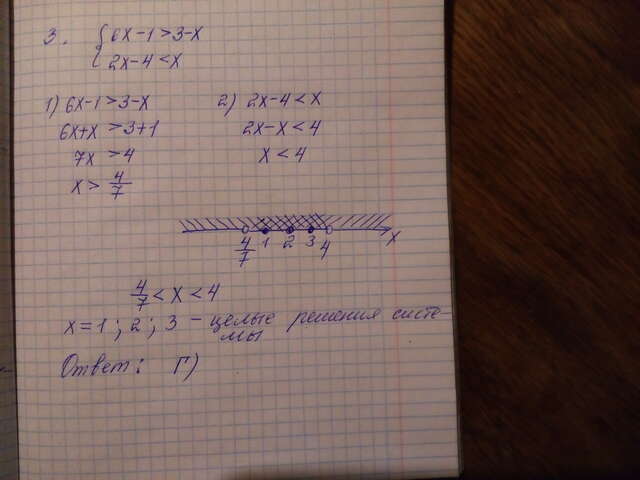 3. { 6x-1>3-x
2x-4<x
1) 6x-1>3-x
6x+x >3+1
7x >4
x > 4/7
2) 2x-4<x
2x-x<4
x<4
4/7 1 2 3 4 x
4/7 < x < 4
x=1; 2; 3 - целые решения систе-
мы
Ответ: Г)